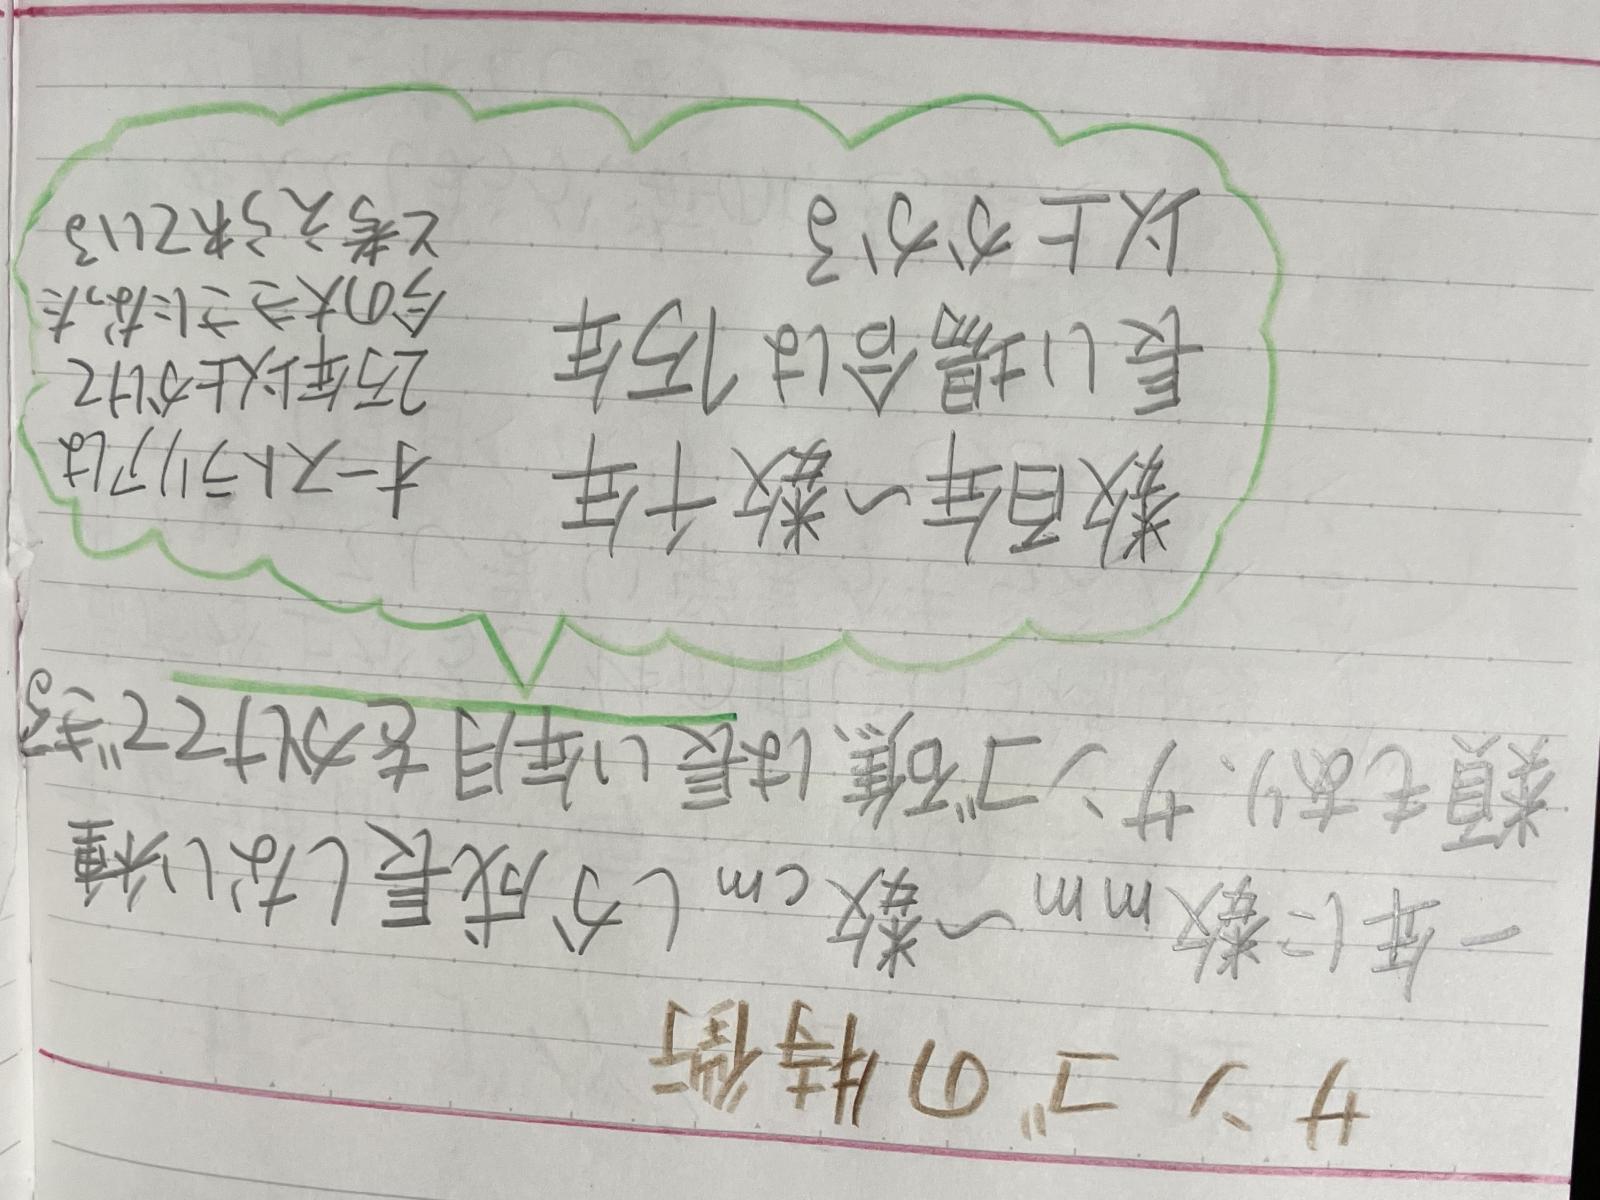 サンゴの特徴
一年に数mm～数cmしか成長しない種
類もあり、サンゴ礁は長い年月をかけてできる
数百年～数千年
長い場合は1万年
以上かかる
オーストラリアは
2万年以上かけて
今の大きさになった
と考えられている